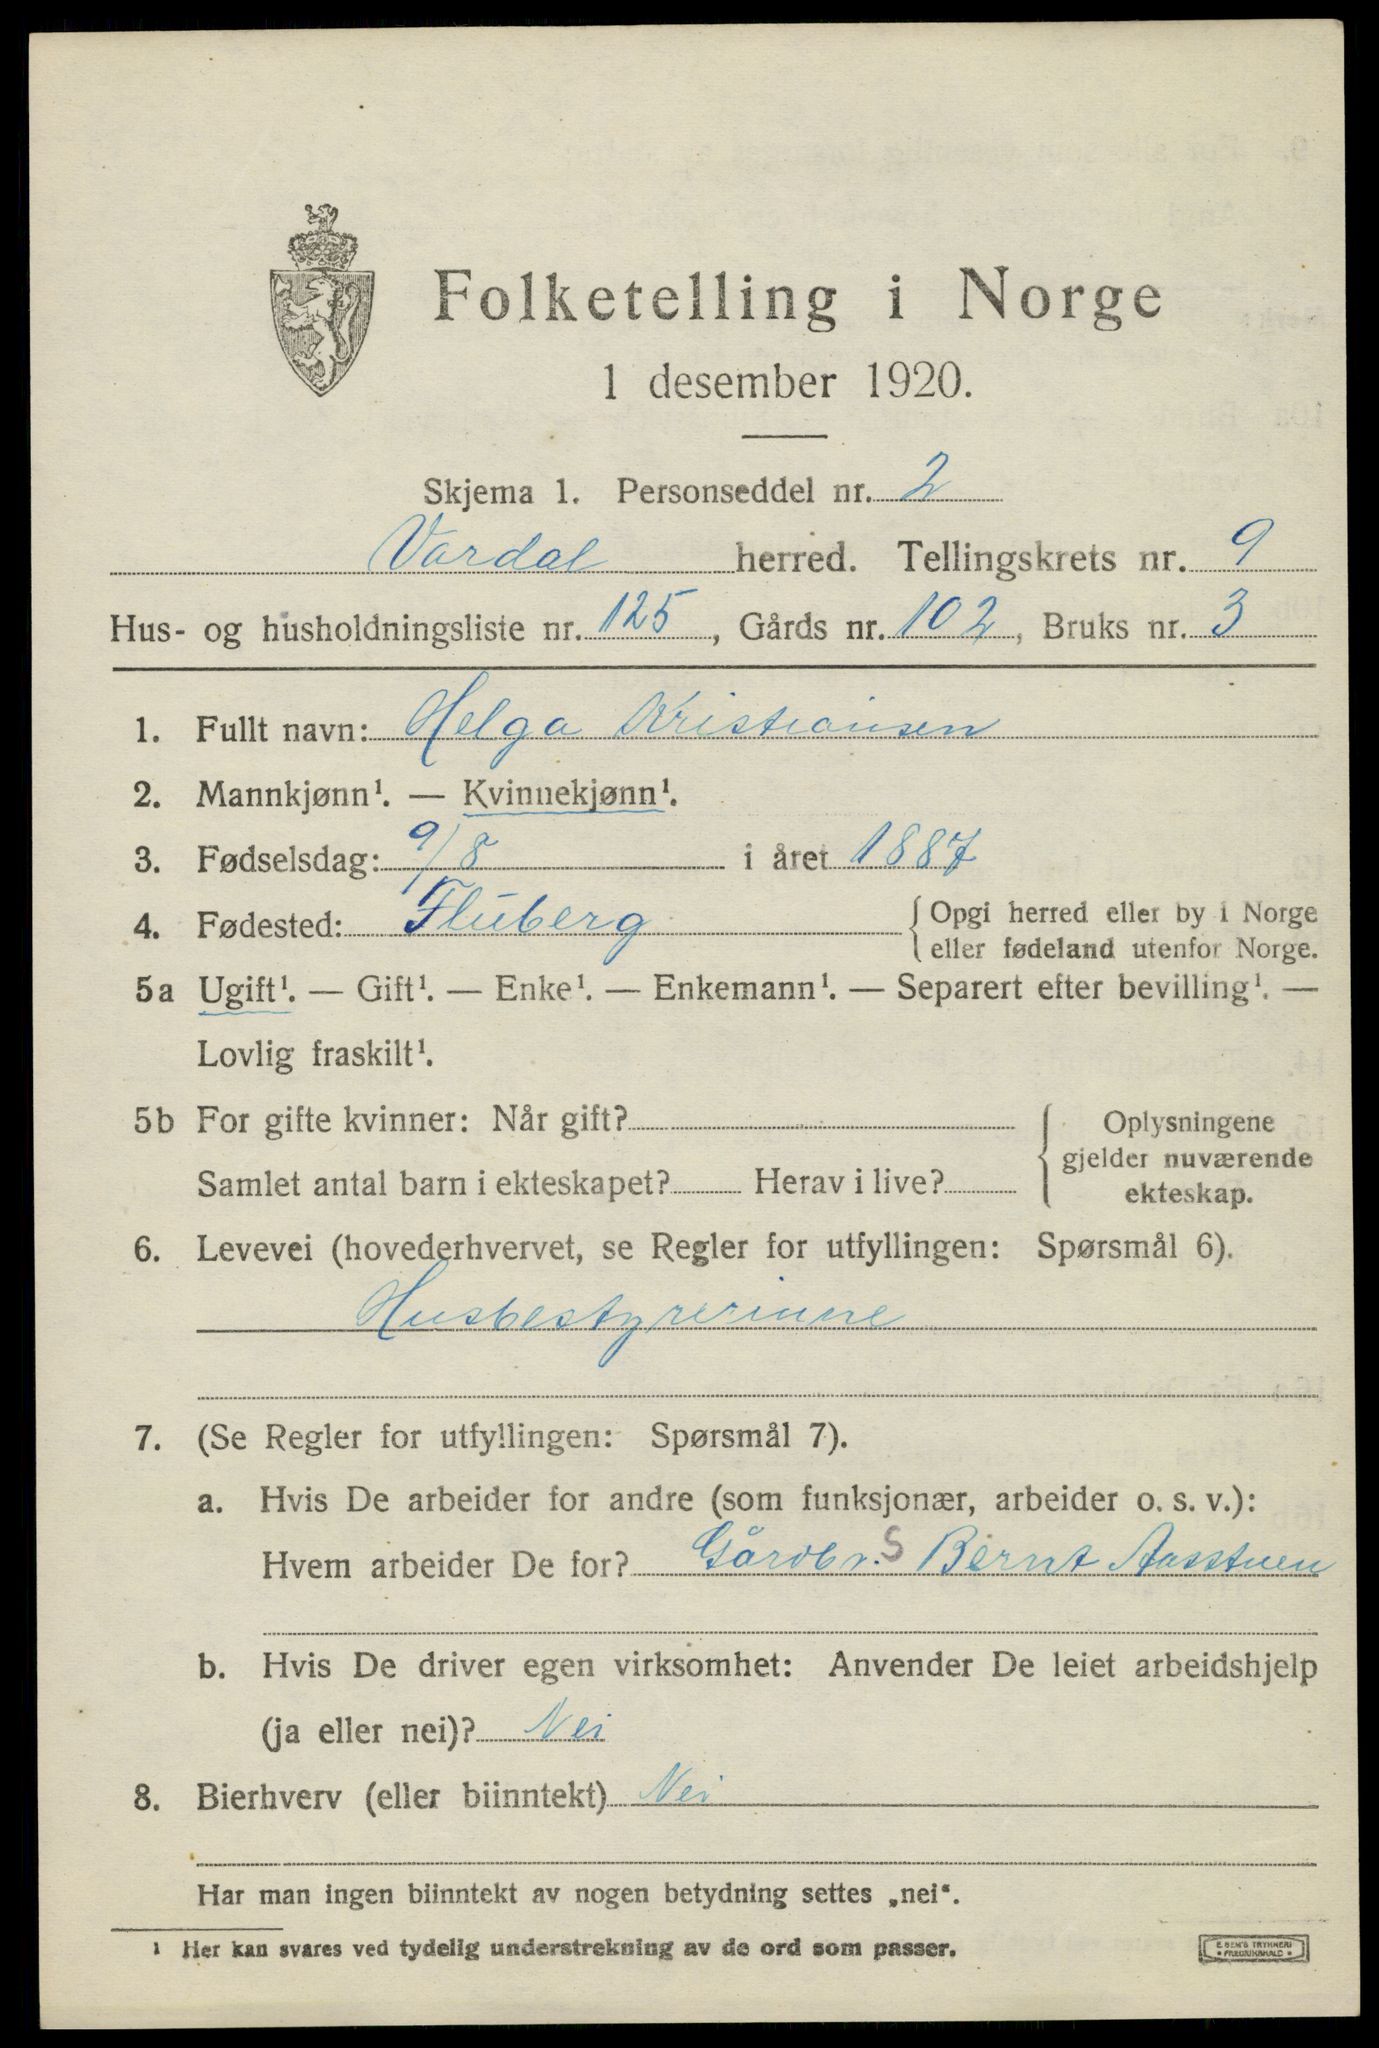 Folketelling i Norge
1 desember 1920.
Skjema 1. Personseddel nr. 2
Vardal herred. Tellingskrets nr. 9
Hus- og husholdningsliste nr. 125, Gårds nr. 102, Bruks nr. 3
1. Fullt navn: Helga Kristiansen
2. Mannkjønn¹. — Kvinnekjønn¹.
3. Fødselsdag: 9/8 i året 1887
4. Fødested: Fluberg { Opgi herred eller by i Norge
eller fødeland utenfor Norge.
5a Ugift¹. — Gift¹. — Enke¹. — Enkemann¹. — Separert efter bevilling¹. —
Lovlig fraskilt¹.
5b For gifte kvinner: Når gift? { Oplysningene
gjelder nuværende
Samlet antal barn i ekteskapet? Herav i live? ekteskap.
6. Levevei (hovederhvervet, se Regler for utfyllingen: Spørsmål 6).
Husbestyrerinne
7. (Se Regler for utfyllingen: Spørsmål 7).
a. Hvis De arbeider for andre (som funksjonær, arbeider o. s. v.):
Hvem arbeider De for? Gårdbr. S Bernt Aasstuen
b. Hvis De driver egen virksomhet: Anvender De leiet arbeidshjelp
(ja eller nei)? Nei
8. Bierhverv (eller biinntekt) Nei
Har man ingen biinntekt av nogen betydning settes „nei“.
¹ Her kan svares ved tydelig understrekning av de ord som passer.
E. SEM'S TRYKKERI
• FREDRIKSHALD •